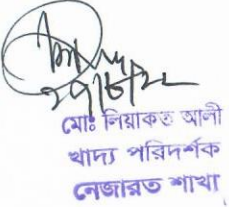 মোঃ লিয়াকত আলী
খাদ্য পরিদর্শক
নেজারত শাখা